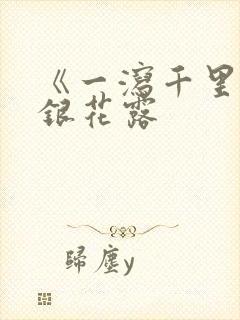 《一瀉千里
銀花露
歸塵y